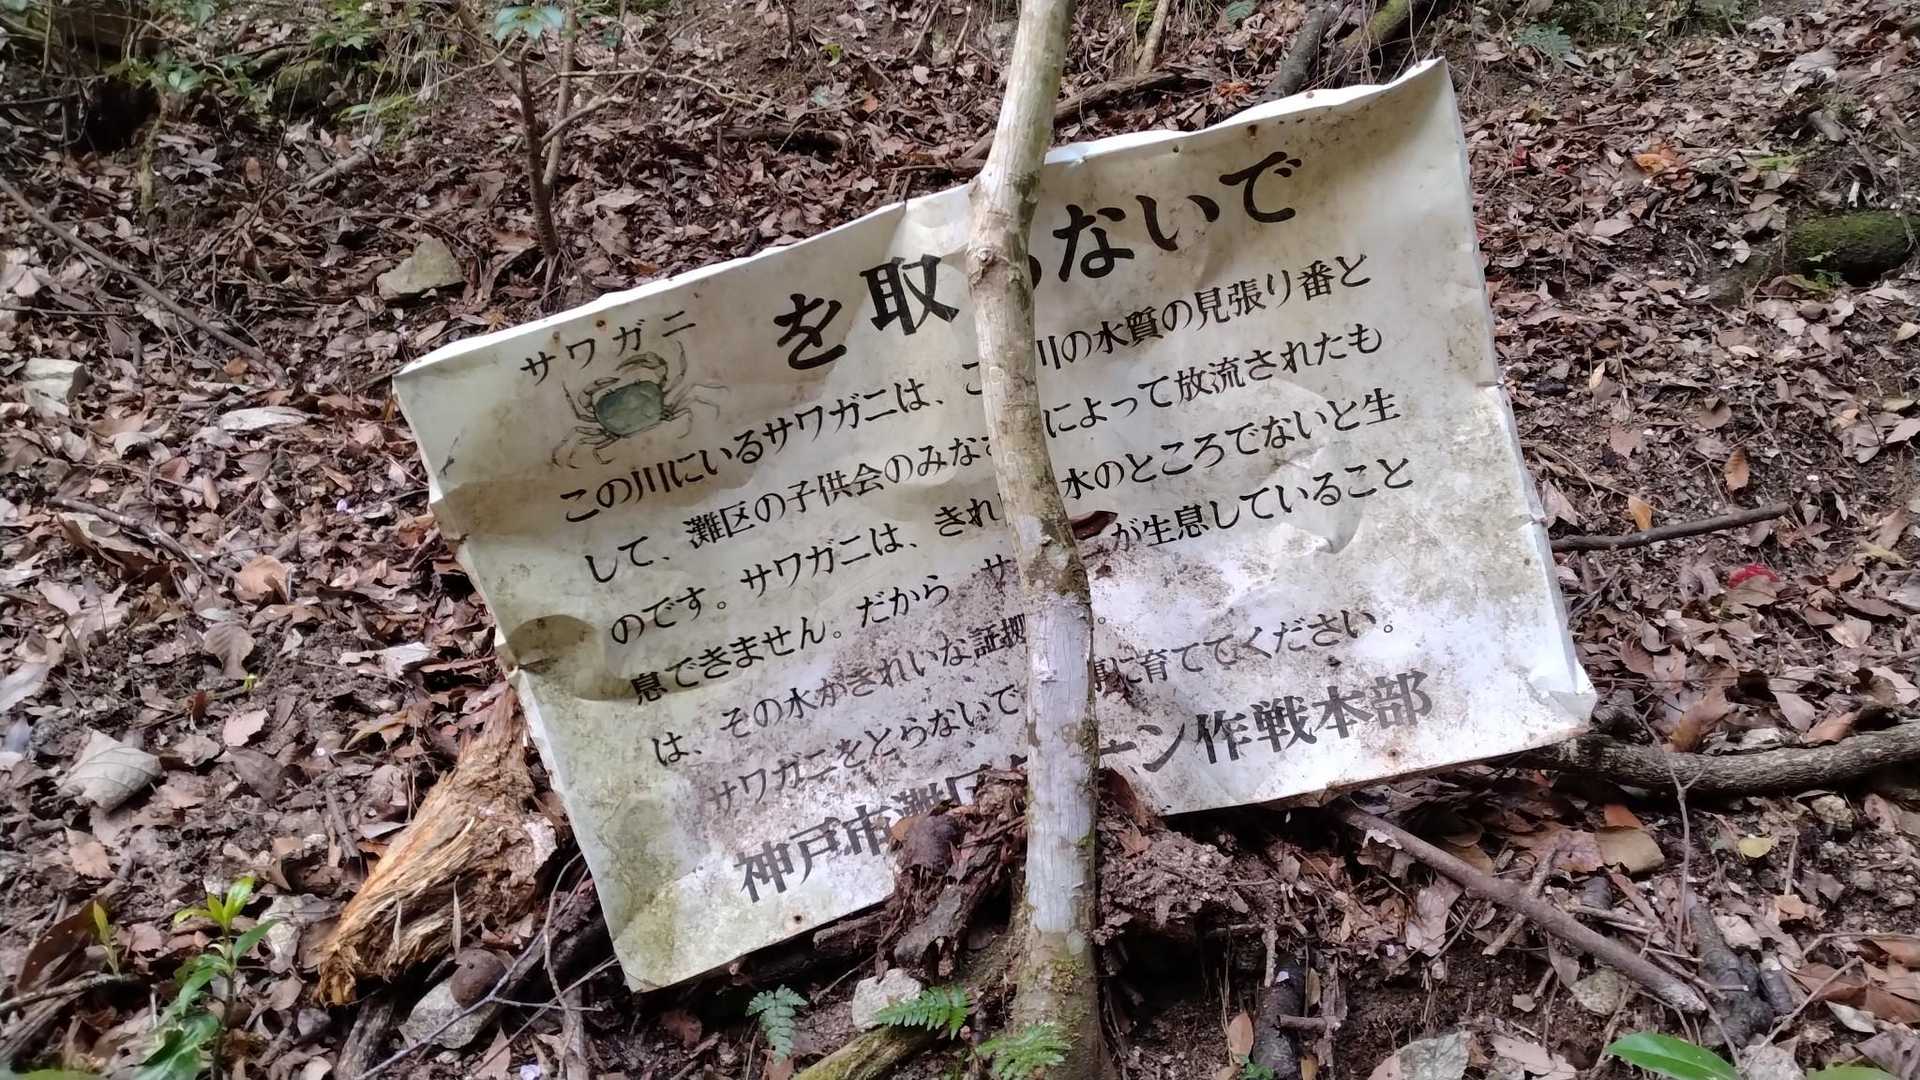 サワガニ
を取 ないで
この川にいるサワガニは、こ 川の水質の見張り番と
して、灘区の子供会のみな によって放流されたも
のです。サワガニは、きれ 水のところでないと生
息できません。だから サ が生息していること
は、その水がきれいな証拠 。
サワガニをとらないで に育ててください。
神戸市灘区 ーン作戦本部